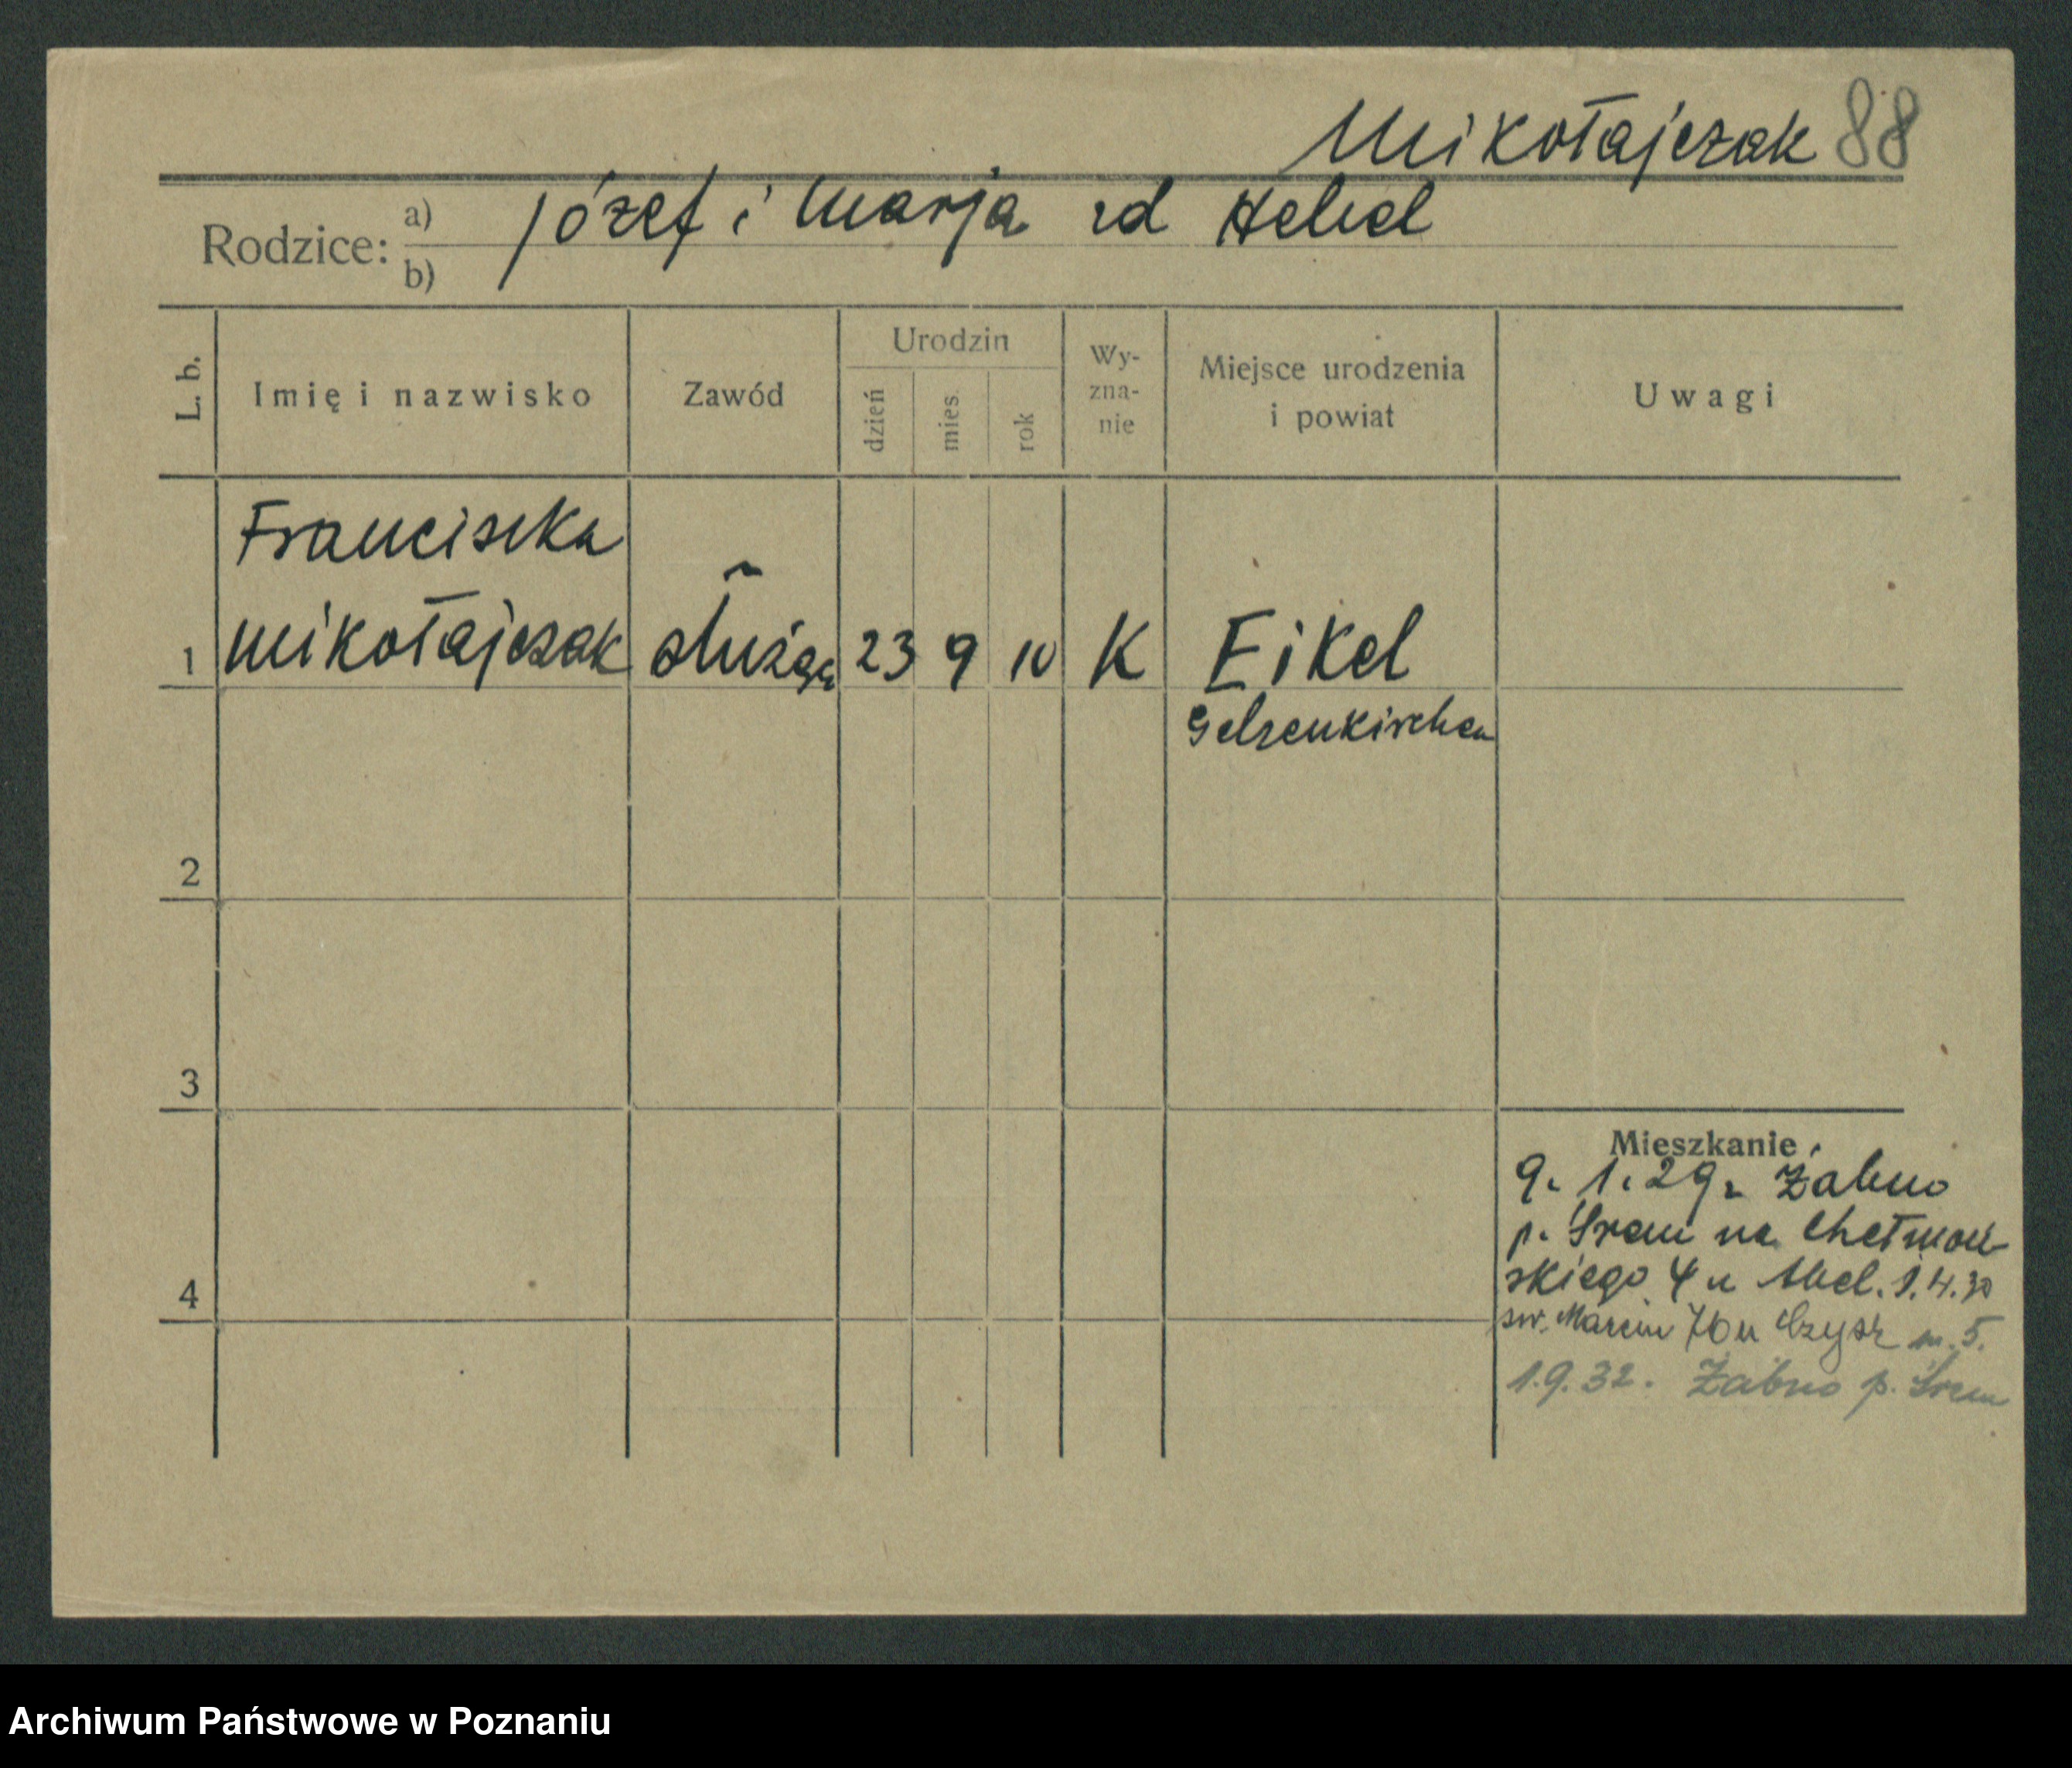 Mikołajczak 88
Rodzice: a) Józef i Marja zd Hebel
b)
L. b. Imię i nazwisko Zawód Urodzin dzień mies. rok Wy-zna-nie Miejsce urodzenia i powiat Uwagi
Franciszka
1 Mikołajczak służąc 23 9 10 K Eikel
Gelsenkirchen
2
3
Mieszkanie
9. 1. 29. Żabno
p. Śrem na Chełmoń-
4 skiego 4 u Abel. 1.4.30
św. Marcin 76 u m. 5.
1.9.32. Żabno p. Śrem
Archiwum Państwowe w Poznaniu